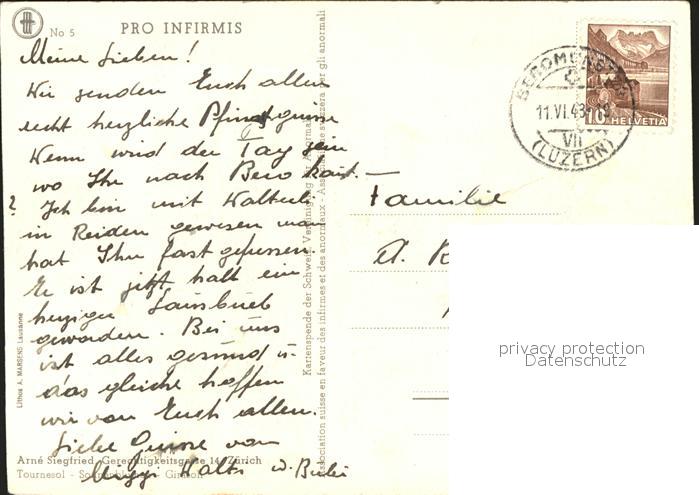 No 5 PRO INFIRMIS
Meine Lieben!
Wir senden Euch allen
recht herzliche Pfingstgrüsse
Wenn wird der Tag sein
wo Ihr nach Bero kommt. —
? Ich bin mit Walterli
in Reiden gewesen man
hat Ihn fast gefressen.
Er ist jetzt halt ein
herziger Lausbueb
geworden. Bei uns
ist alles gesund u.
das gleiche hoffen
wir von Euch allen.
Liebe Grüsse von
Walti u. Buebi
Arné Siegfried, Gerechtigkeitsgasse 14, Zürich
Tournesol - Sonnenblume - Girasol
Lithos A. MARSENS Lausanne
Kartenspende der Schweiz. Vereinigung für Anormale
Association suisse en faveur des infirmes et des anormaux - Assoc. svizzera per gli anormali
BEROMÜNSTER
11.VI.43
VII
(LUZERN)
10 HELVETIA
Familie
A.
privacy protection
Datenschutz